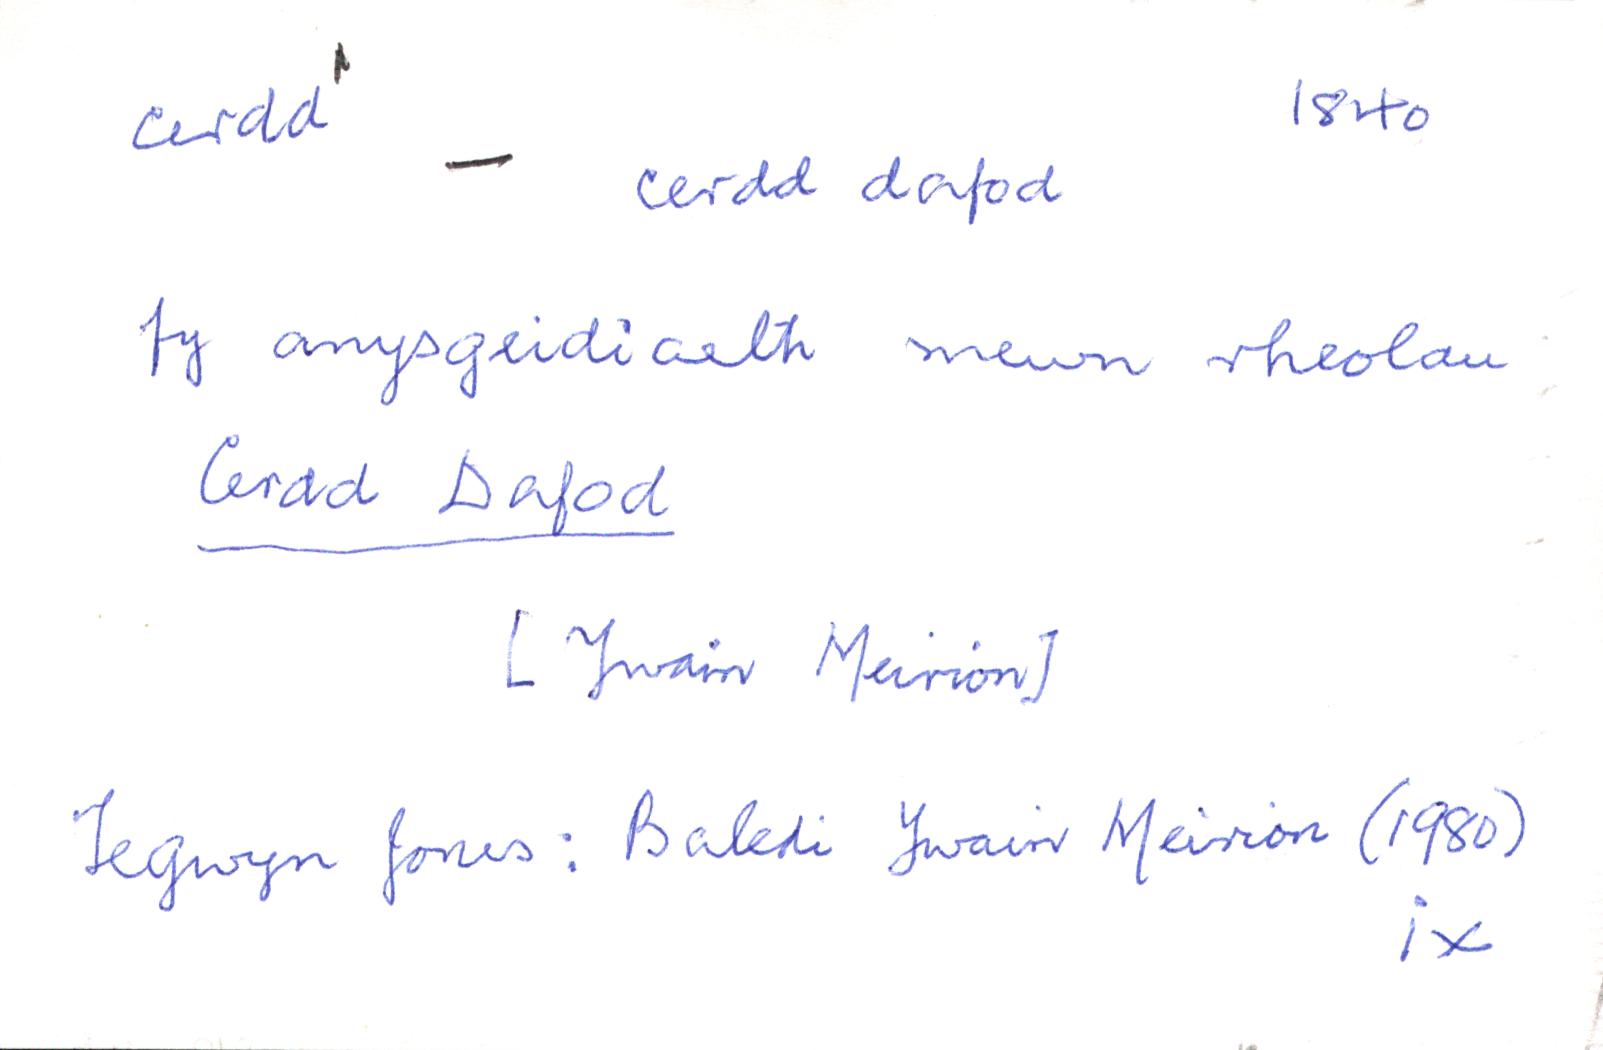 cerdd¹ 1840
— cerdd dafod
fy anysgeidiaeth mewn rheolau
Cerdd Dafod
[Ywain Meirion]
Tegwyn Jones: Baledi Ywain Meirion (1980)
ix